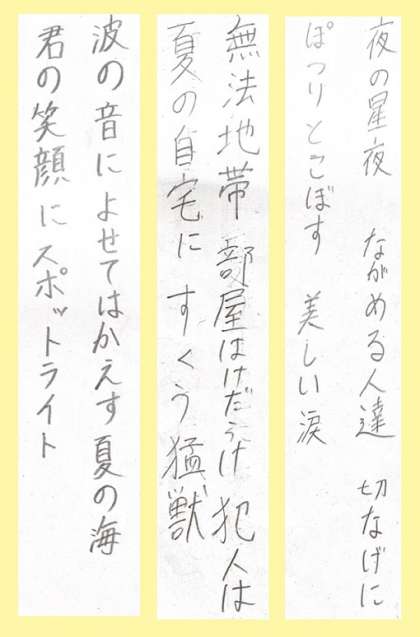 夜の星夜 ながめる人達 切なげに
ぽつりとこぼす 美しい涙
無法地帯 部屋はけだらけ 犯人は
夏の自宅に すくう猛獣
波の音に よせてはかえす夏の海
君の笑顔にスポットライト